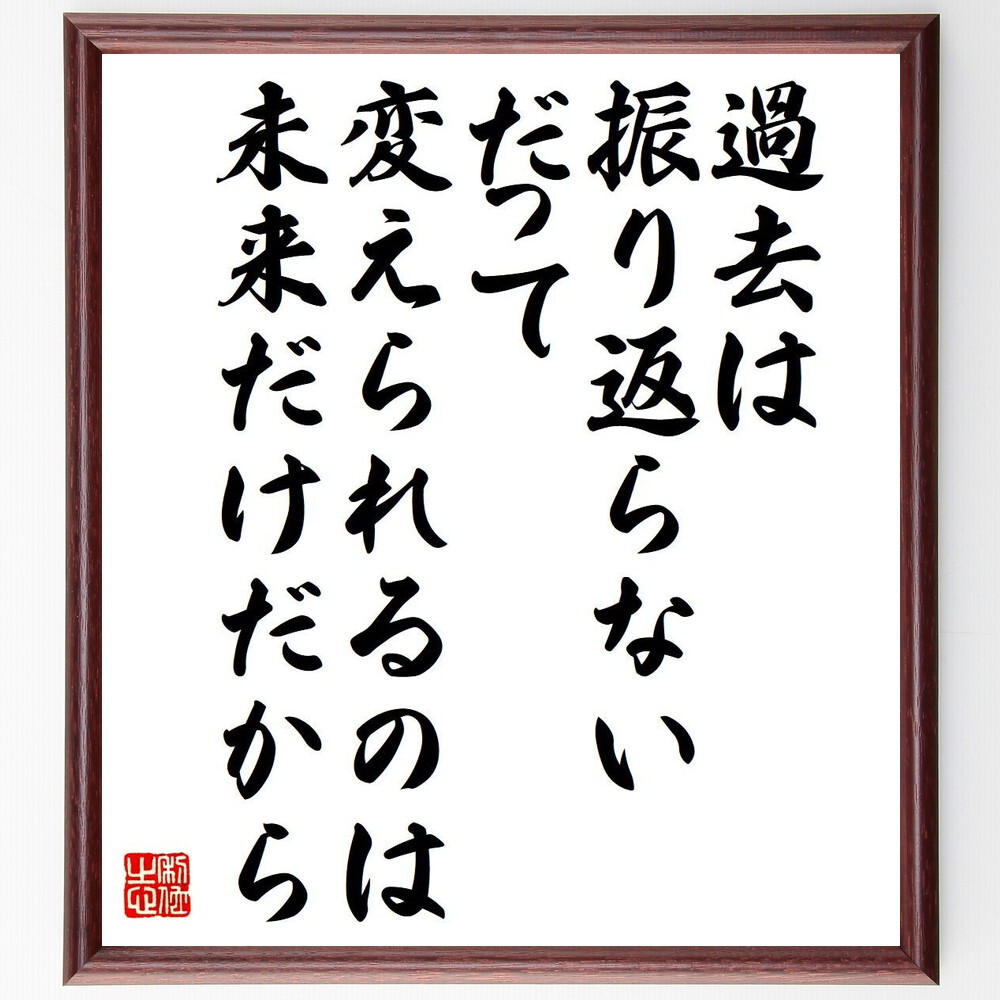 過去は
振り返らない
だって
変えられるのは
未来だけだから